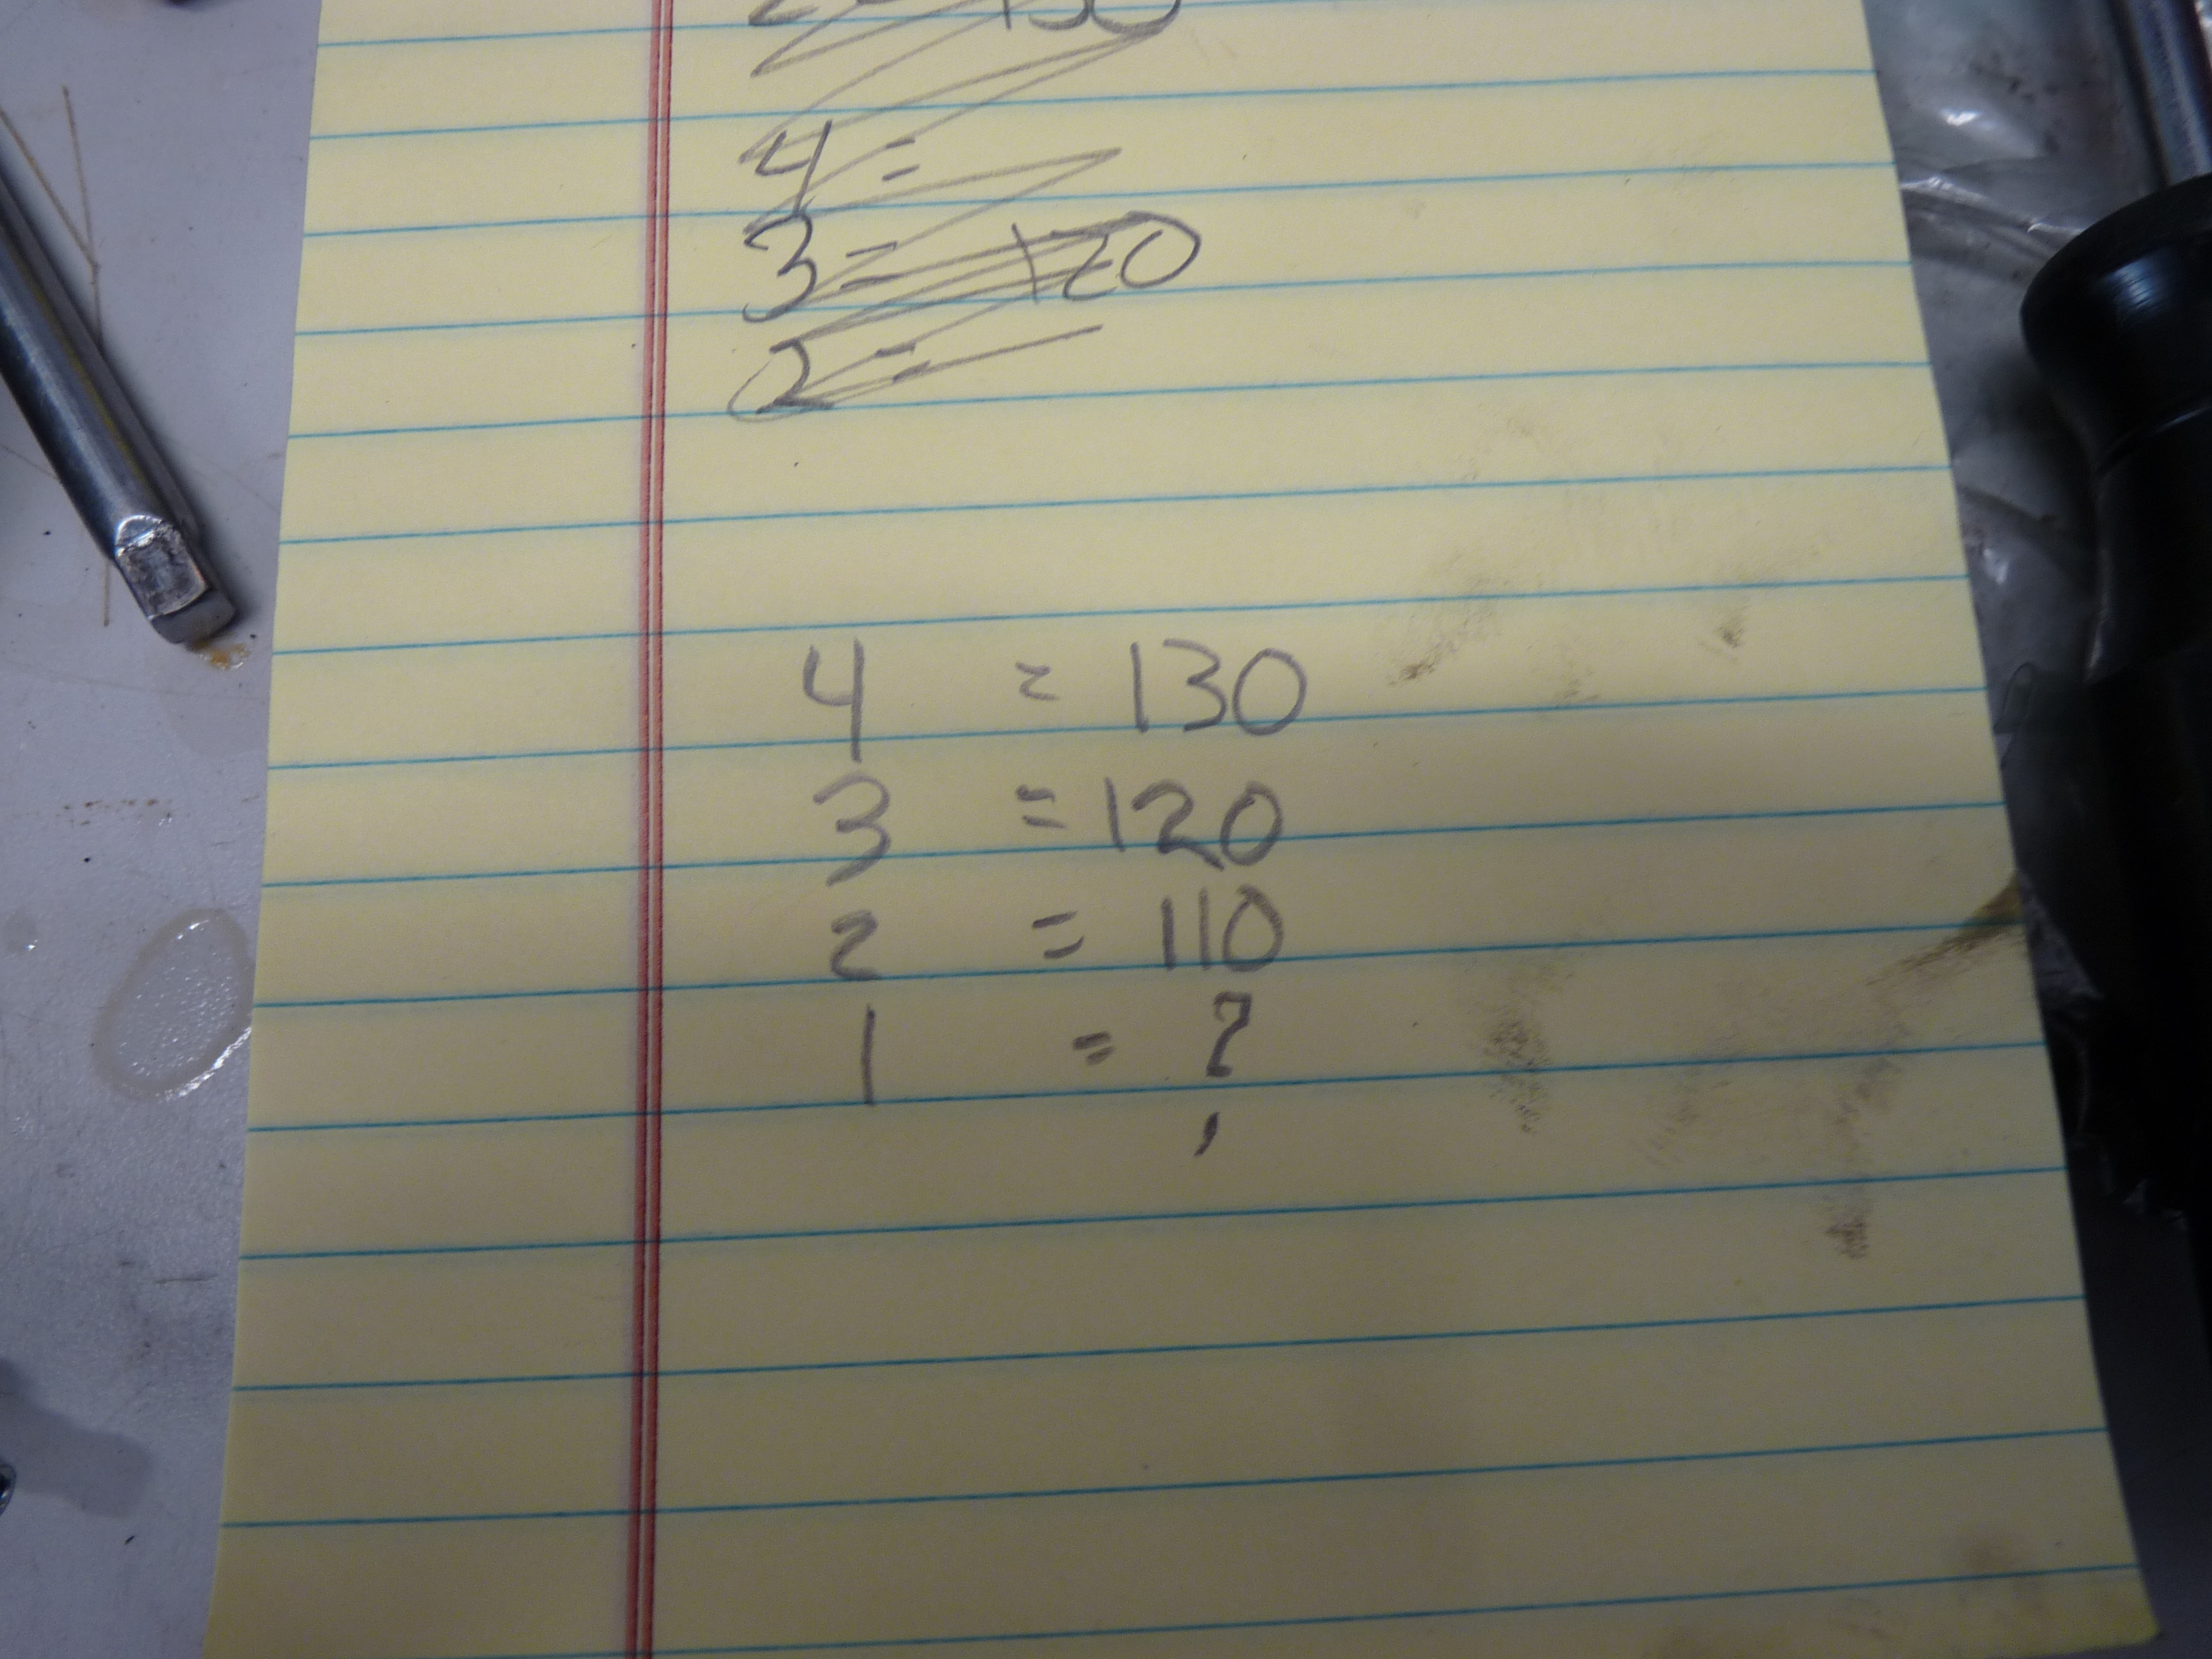 2 = 130
4 =
3 = 120
2 =
4 = 130
3 = 120
2 = 110
1 = ?